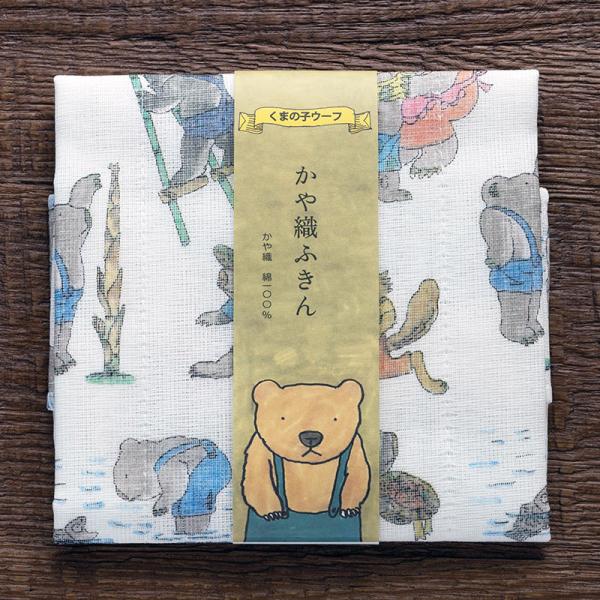 くまの子ウーフ
かや織ふきん
かや織　綿一〇〇%